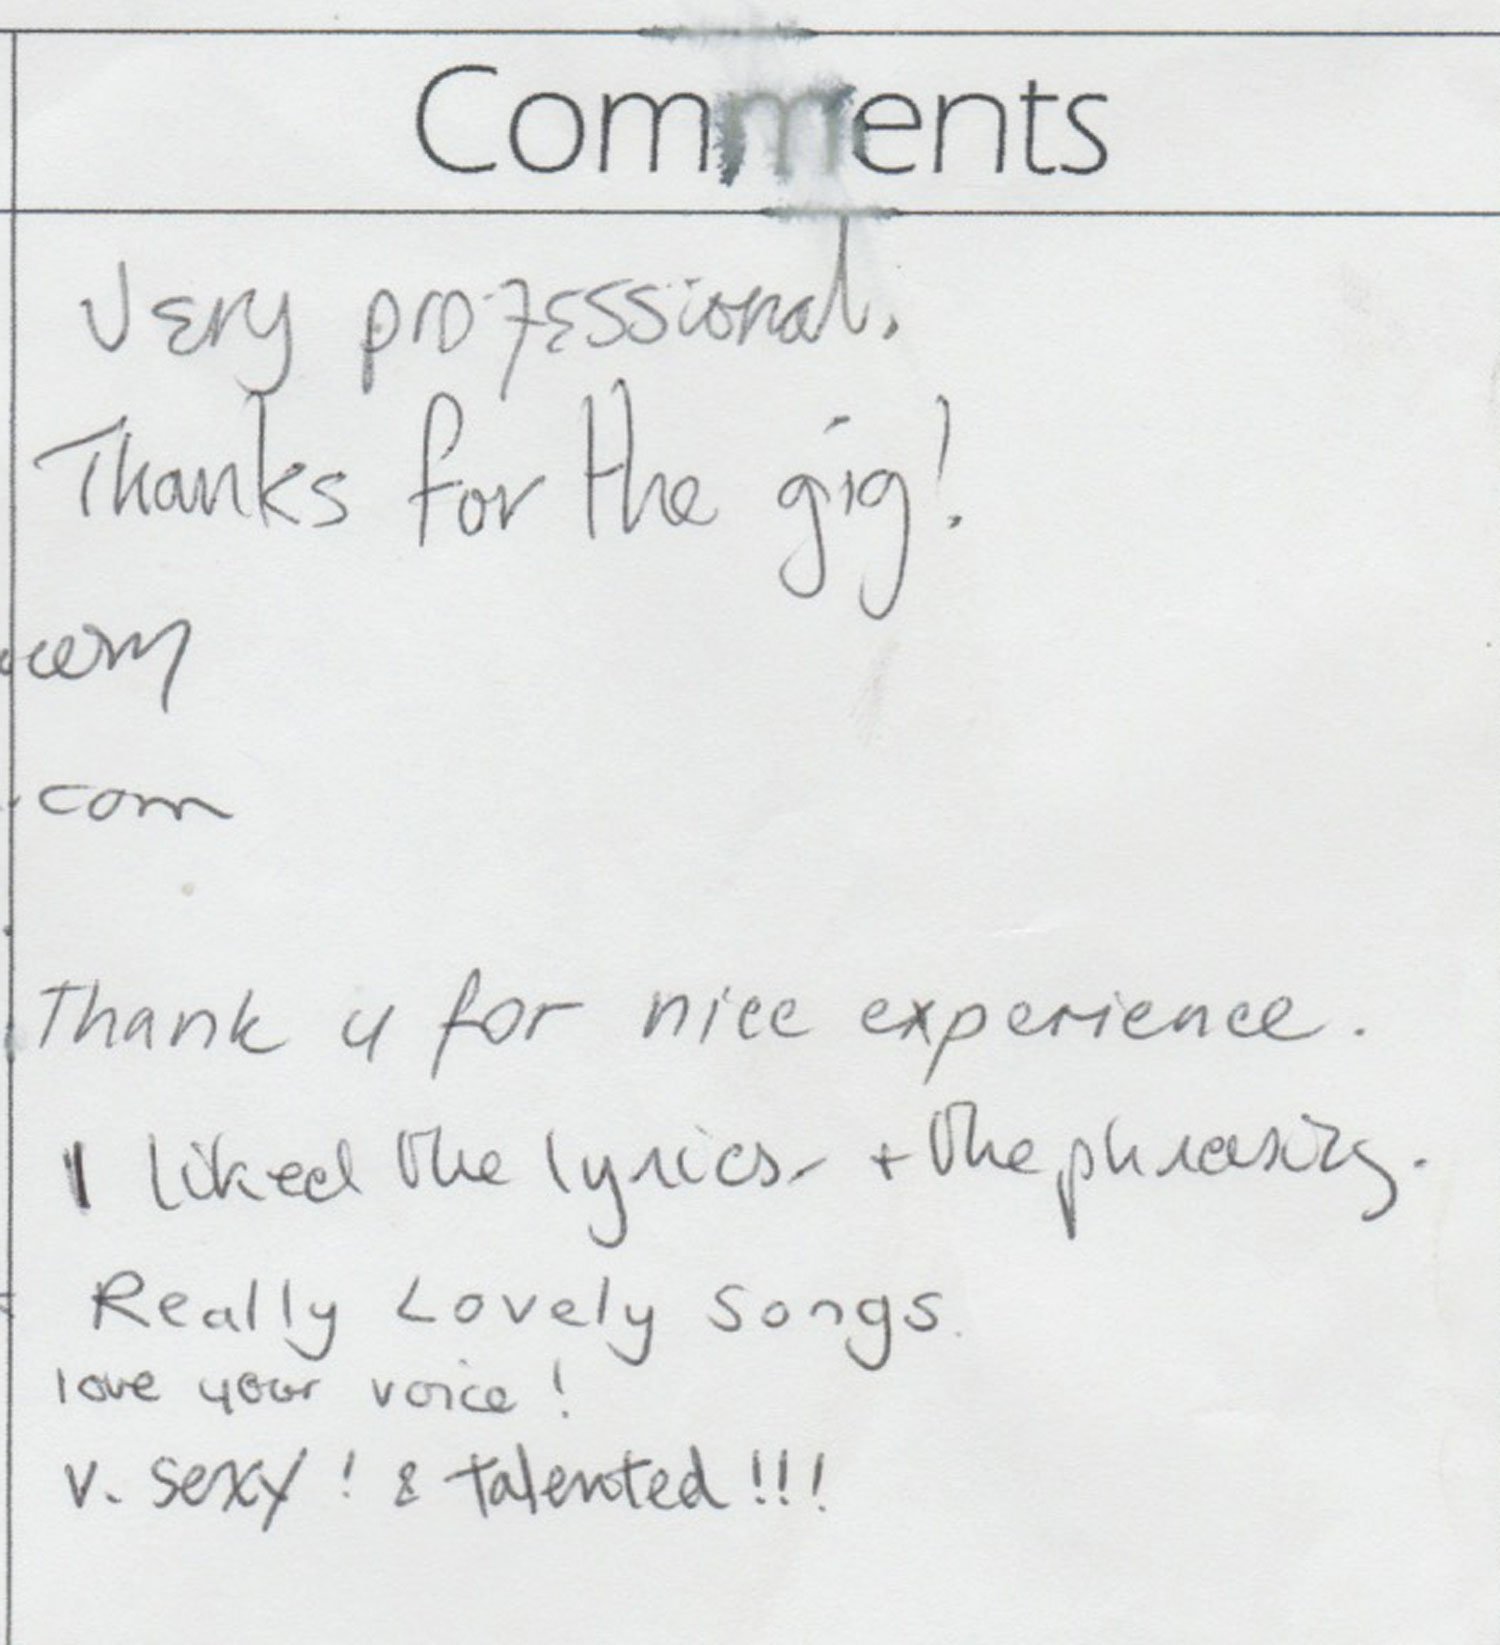 Comments
Very professional.
Thanks for the gig!
com
Thank u for nice experience.
I liked the lyrics + the phrasing.
Really Lovely Songs.
love your voice!
v. sexy! & talented!!!